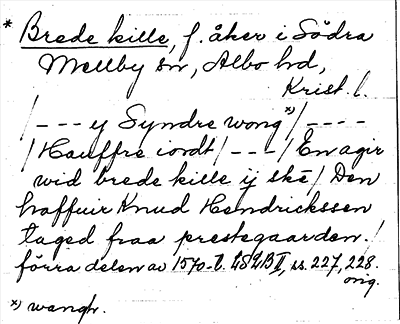 * Brede kille, f. åker i Södra
Mellby sn, Albo hd,
Krist. l.
/--- y Syndre wong *)/----
/Hauffre iordt/---/ En agir
wid brede kille ij ske/ Den
haffuir Knud Hendrickssen
taged fraa prestegaarden./
förra delen av 1570-t. LSLB II, ss. 227, 228.
orig.
*) wangh.